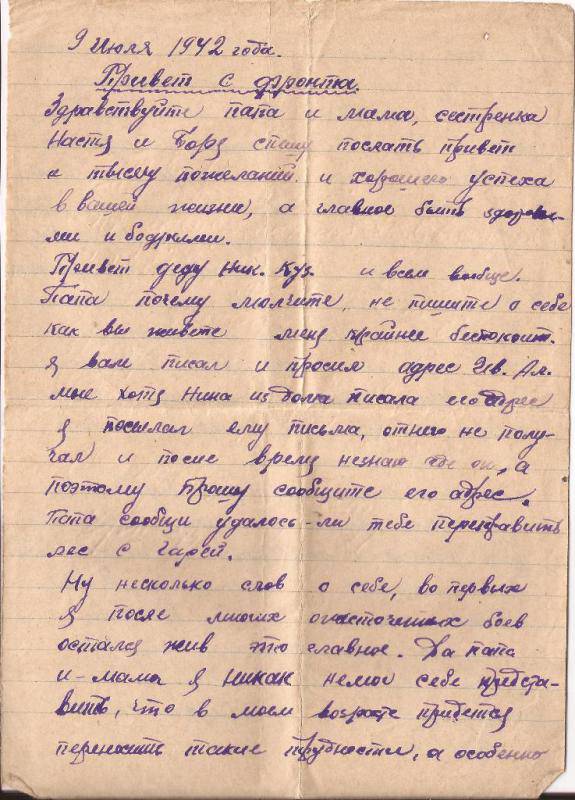 9 Июля 1942 года.
Привет с фронта.
Здравствуйте папа и мама, сестренка
Настя и Боря спешу послать привет
и тысячу пожеланий и хорошего успеха
в вашей жизни, а главное быть здоров-
ми и бодрыми.
Привет деду Ник. Куз. и всем вообще.
Папа почему молчите, не пишите о себе
как вы живете меня крайнее беспокоит.
Я вам писал и просил адрес Ив. Ал.
мне хотя Нина из дома писала его адрес
я посылал ему письма, от него не полу-
чал и после время незнаю где он, а
поэтому прошу сообщите его адрес.
Папа сообщи удалось-ли тебе переправить
лес с гарей.
Ну несколько слов о себе, во первых
я после многих ожесточенных боев
остался жив это главное. Да папа
и-мама я никак немог себе предста-
вить, что в моем возрасте придется
переносить такие трудности, а особенно